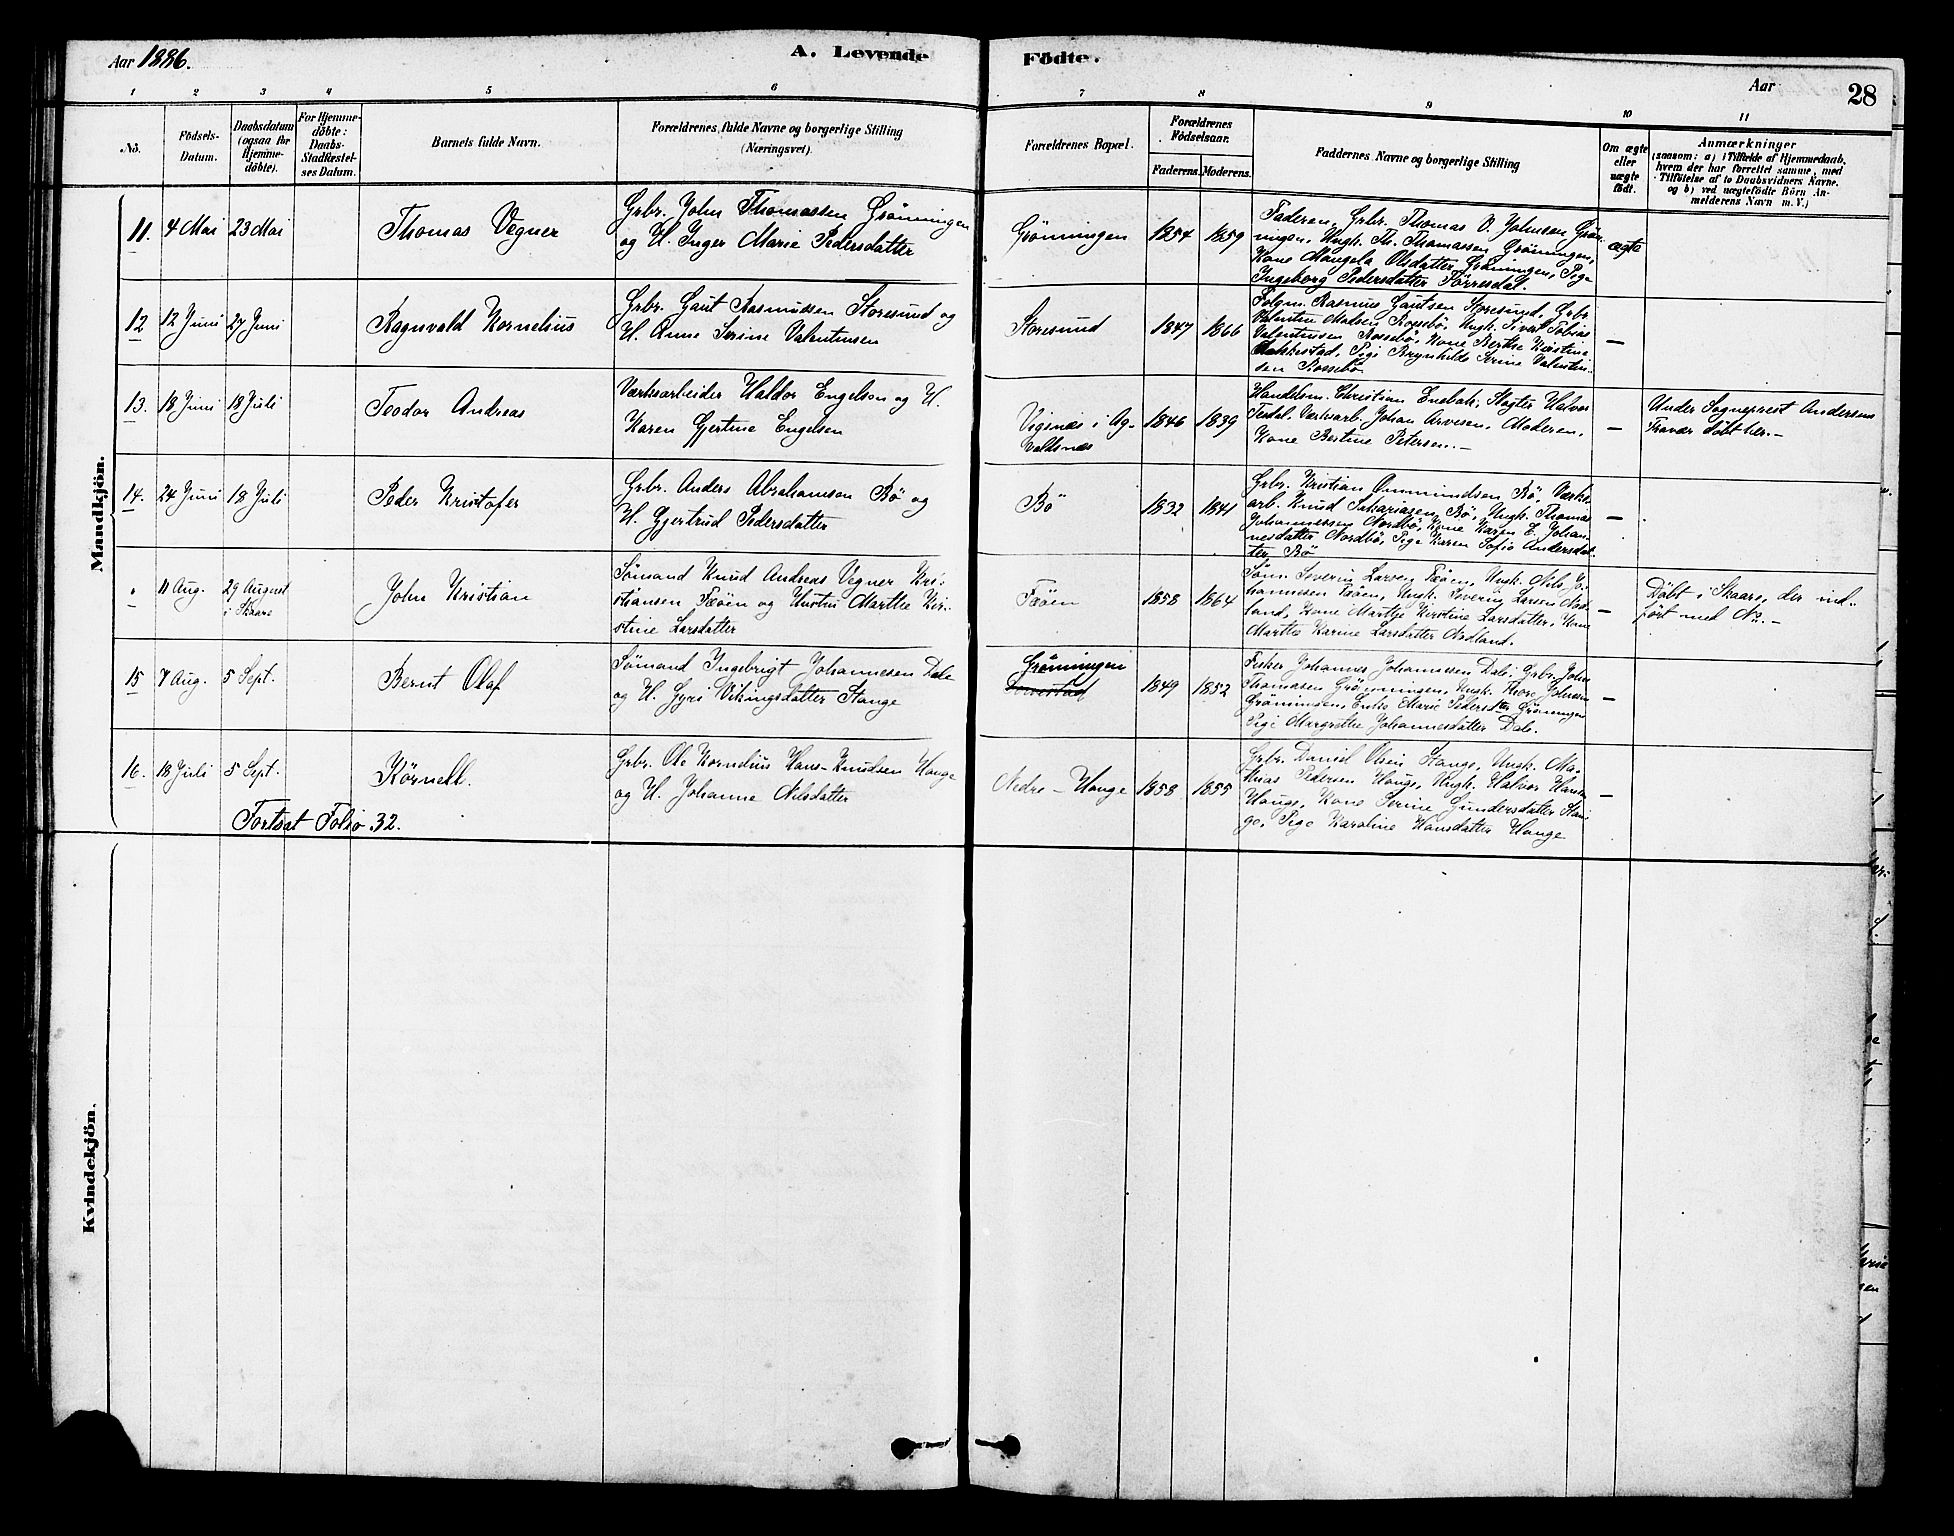 Aar 1886.
A. Levende
Födte.
Aar
28
1
2
3
4
5
6
7
8
9
10
11
No.
Födsels-
Datum.
Daabsdatum
(ogsaa for
Hjemme-
döbte).
For Hjemme-
döbte:
Daabs-
Stadfæstel-
ses Datum.
Barnets fulde Navn.
Forældrenes fulde Navne og borgerlige Stilling
(Næringsvei).
Forældrenes Bopæl.
Forældrenes
Födselsaar.
Faderens.
Moderens.
Faddernes Navne og borgerlige Stilling
Om ægte
eller
uægte
födt.
Anmærkninger
(saasom: a) i Tilfælde af Hjemmedaab,
hvem der har forrettet samme, med
Tilföielse af to Daabsvidners Navne,
og b) ved uægtefödte Börn An-
melderens Navn m. V.)
Mandkjön.
11.
4 Mai
23 Mai
Thomas Vegner
Grbr. John Thomassen Grönningen
og H. Inger Marie Pedersdatter
Grönningen
1854
1859
Faderen, Grbr. Thomas V. Johnsen Grön-
ningen, Ungk. Th. Thomassen Grönningen,
Kone Mangela Olsdatter Grönningen, Pige
Ingeborg Pedersdatter Förresdal.
ægte
12
12 Juni
27 Juni
Ragnvald Kornelius
Grbr. Gaut Rasmussen Storesund og
H. Anne Serine Valentinsen
Storesund
1847
1866
Folgm. Rasmus Gautsen Storesund, Grbr.
Valentin Madsen Rossebö, Ungk. Sivert Tobias
Valentinsen Rossebö, Kone Berthe Kristine
Pige Brynhilde Serine Valentin-
sen Rossebö
—
13.
18 Juni
18 Juli
Teodor Andreas
Værksarbeider Haldor Engelsen og H.
Karen Gjertine Engelsen
Vigsnæs i Ag-
valdsnæs
1846
1839
Handelsm. Christian Enebak, Slagter Halvor
Værksarb. Johan Arvesen, Moderen,
Kone Bertine Petersen.—
—
Under Sogneprest Andersens
Fravær döbt her.—
14.
24 Juni
18 Juli
Peder Kristofer
Grbr. Anders Abrahamsen Bö og
H. Gjertrud Pedersdatter
Bö
1832
1841
Grbr. Kristian Ommundsen Bö, Værks-
arb. Knud Sakariasen Bö, Ungk. Thomas
Johannessen Nordbö, Kone Karen E. Johan-
nesdatter Nordbö, Pige Karen Sofie Andersdat-
ter Bö
—
"
11 Aug.
29 August
i Skaare
John Kristian
Sömand Knud Andreas Vegner Kri-
stiansen Fæöen og Hustru Marthe Kir-
stine Larsdatter
Fæöen
1858
1864
Söm. Severin Larsen Fæöen, Ungk. Nils Jo-
hannesen Fæöen, Ungk. Severin Larsen Aad-
land, Kone Marthe Kirstine Larsdatter, Kone
Marthe Karine Larsdatter Aadland.
—
Döbt i Skaare, der ind-
fört med No.—
15
7 Aug.
5 Sept.
Bernt Olaf
Sömand Ingebrigt Johannesen Dale
og H. Gyri Vikingsdatter Stange
Grönningen
1849
1852
Fisker Johannes Johannesen Dale, Grbr. John
Thomasen Grönningen, Ungk. Thore Johnsen
Grönningen, Enke Marie Pedersdtr Grönningen
Pige Margrethe Johannesdatter Dale.
—
16.
18 Juli
5 Sept.
Körnell.
Grbr. Ole Kornelius Hans-Knudsen Hauge
og H. Johanne Nilsdatter
Nedre-Hauge
1858
1855
Grbr. Daniel Olsen Stange, Ungk. Ma-
thias Pedersen Hauge, Ungk. Halvor Hansen
Hauge, Kone Serine Gundersdatter Stan-
ge, Pige Karoline Hansdatter Hauge
—
Fortsat Folio 32.
Kvindekjön.